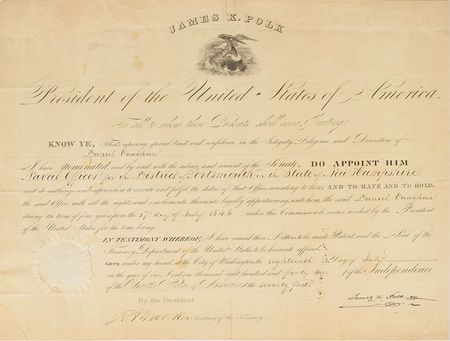 JAMES K. POLK
President of the United States of America.
For all to whom these Presents shall come, Greeting:
KNOW YE, That, reposing special trust and confidence in the Integrity, Diligence and Discretion of
Daniel Vaughan
I have Nominated, and by and with the advice and consent of the Senate, DO APPOINT HIM
Naval Officer for the District of Portsmouth in the State of New Hampshire
and do authorize and empower him to execute and fulfil the duties of that Office according to law; AND TO HAVE AND TO HOLD,
the said Office with all the rights and emoluments thereunto legally appertaining, unto him, the said Daniel Vaughan
during the term of four years from the 17 day of July 1846 unless this Commission be sooner revoked by the President
of the United States for the time being.
IN TESTIMONY WHEREOF, I have caused these Letters to be made Patent, and the Seal of the
Treasury Department of the United States to be hereunto affixed.
GIVEN under my hand, at the City of Washington the eighteenth day of July
in the year of our Lord one thousand eight hundred and forty six of the Independence
of the United States of America the seventy first.
By the President
James K. Polk
Secretary of the Treasury